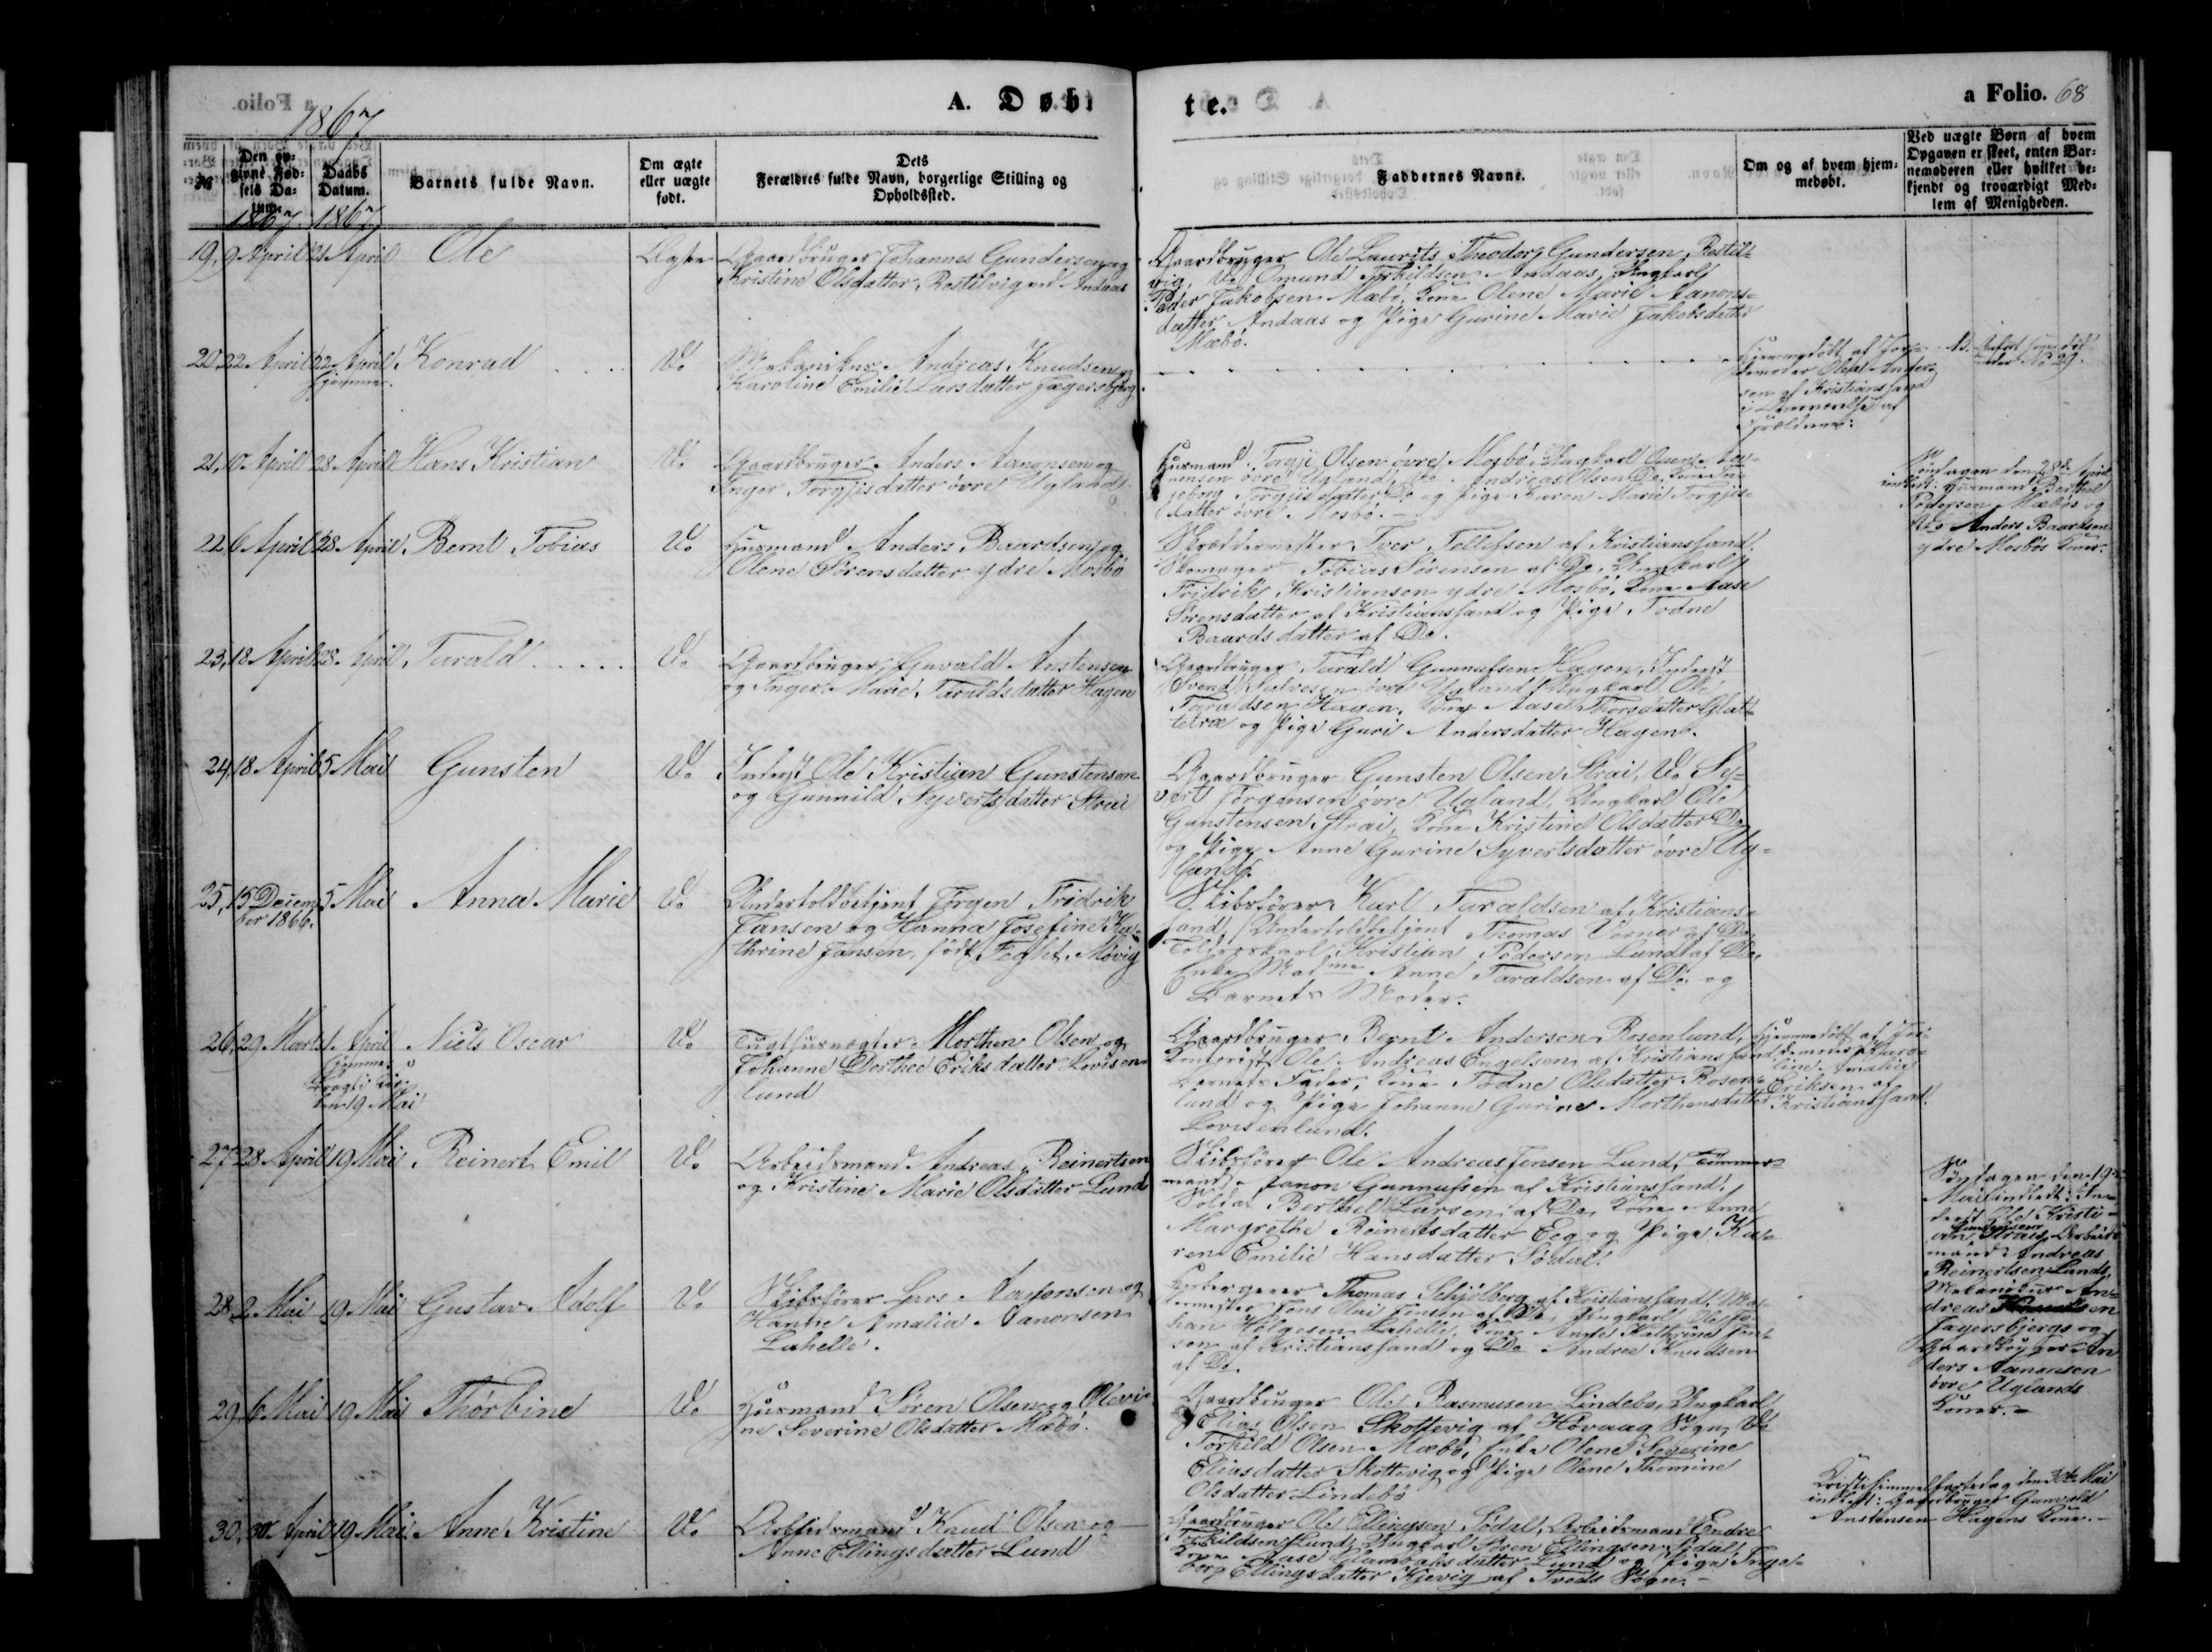 1867
A. Døbte.
a Folio. 68
№
Den opgivne Fødsels Datum.
1867.
Daabs Datum.
1867
Barnets fulde Navn.
Om ægte eller uægte født.
Dets Forældres fulde Navn, borgerlige Stilling og Opholdssted.
Faddernes Navne.
Om og af hvem hjemmedøbt.
Ved uægte Børn af hvem Opgaven er skeet, enten Barnemoderen eller hvilket bekjendt og troværdigt Medlem af Menigheden.
19, 9 April 21 April Ole Ægte
Gaardbruger Johannes Gundersen og
Kristine Olsdatter, Rostilvig ved Andaas
Gaardbruger Ole Laurits Theodor Gundersen, Rostil-
vig, Do Omund Torkildsen Andaas, Ungkarl
Peder Jakobsen Mæbø, Kone Olene Marie Aanons-
datter Andaas og Pige Gurine Marie Jakobsdatter
Mæbø.
20, 22 April 22 April Konrad Do
hjemme.
Mekanikus Andreas Knudsen og
Karoline Emilie Larsdatter Jægersbjerg
Hjemmedøbt af Jor-
demoder Andersen af Kristianssand
i Overværelse af
Forældrene.
21, 10 April 28 April Hans Kristian Do
Gaardbruger Anders Aanonsen og
Inger Torgjisdatter øvre Ugland
Husmand Torgji Olsen øvre Mosbø, Ungkarl
øvre Ugland, Do Andreas Olsen Do, Kone
Torgjisdatter Do og Pige Karen Marie Torgjis-
datter øvre Mosbø.
Søndagen den 28de April
indledt: Husmand Berthel
Pedersen Mæbøs og
Do Anders Baardsen
ydre Mosbøs Koner.
22, 6 April 28 April Bernt Tobias Do
Husmand Anders Baardsen og
Olene Sørensdatter ydre Mosbø
Skræddermester Iver Tellefsen af Kristianssand,
Skomager Tobias Sørensen af Do, Ungkarl
Fridrik Kristiansen ydre Mosbø, Kone Aase
Sørensdatter af Kristianssand og Pige Todne
Baardsdatter af Do.
23, 18 April 28 April Tarald Do
Gaardbruger Gunvald Anstensen
og Inger Marie Taraldsdatter Hagen
Gaardbruger Tarald Gunnufsen Hagen, Inderst
Svend Salvesen øvre Ugland, Ungkarl Ole
Taraldsen Hagen, Kone Aase Thorsdatter Glat-
tetræ og Pige Guri Andersdatter Hagen.
24, 18 April 5 Mai Gunsten Do
Inderst Ole Kristian Gunstensen
og Gunnild Syvertsdatter Strai
Gaardbruger Gunsten Olsen Strai, Do Sy-
vert Jørgensen øvre Ugland, Ungkarl Ole
Gunstensen Strai, Kone Kristine Olsdatter Do
og Pige Anne Gurine Syvertsdatter øvre Ug-
land.
25, 15 Decem- 5 Mai Anna Marie Do
ber 1866.
Undertoldbetjent Jørgen Fridrik
Jansen og Hanna Josefine Ka-
thrine Jansen, født Foght, Møvig
Skibsfører Karl Taraldsen af Kristians-
sand, Undertoldbetjent Thomas Vørner af Do,
Toldopkarl Kristian Pedersen Lund af Do,
Enke Madme Anne Taraldsen af Do og
Barnets Moder.
26, 29 Marts 1 April Niels Oscar Do
hjemme,
19 Mai
Tugthusvægter Morthen Olsen og
Johanne Dorthea Eriksdatter Lovisen-
lund
Gaardbruger Bernt Andersen Rosenlund,
Kontorist Ole Andreas Engelsen af Kristianssand,
Barnets Fader, Kone Todne Olsdatter Rosen-
lund og Pige Johanne Gurine Morthensdatter
Lovisenlund.
Hjemmedøbt af Jor-
demoder Karo-
line Amalie
Eriksen af
Kristianssand.
27, 28 April 19 Mai Reinert Emil Do
Arbeidsmand Andreas Reinertsen
og Kristine Marie Olsdatter Lund
Skibsfører Ole Andreas Jensen Lund, Tømmer-
mand Aanon Gunnufsen af Kristianssand,
Soldat Berthel Larsen af Do, Kone Anne
Margrethe Reinertsdatter Eeg og Pige Ka-
ren Emilie Hansdatter Sødal.
Søndagen den 19de
Mai indledt: In-
derst Ole Kristi-
an Gunstensen Strais, Arbeids-
mand Andreas
Reinertsen Lunds,
Mekanikus An-
dreas Knudsen
Jægersbjergs og
Gaardbruger An-
ders Aanonsen
øvre Uglands
Koner.
28, 2 Mai 19 Mai Gustav Adolf Do
Skibsfører Lars Aanonsen og
Hanne Amalia Aanonsen
Lahelle.
Thomas Schjølberg af Kristianssand, Ma-
lermester Jens Olai Jensen af Do, Ungkarl Ole Jo-
han Helgesen Lahelle, Kone Anne Kathrine Jen-
sen af Kristianssand og Do Andrea Knudsen
af Do.
29, 6 Mai 19 Mai Thorbine Do
Husmand Søren Olsen og Olevi-
ne Severine Olsdatter Mæbø.
Gaardbruger Ole Rasmusen Lindebø, Ungkarl
Elias Olsen Skottevig af Høvaag Sogn, Do
Torkild Olsen Mæbø, Enke Olene Severine
Eliasdatter Skottevig og Pige Olene Thomine
Olsdatter Lindebø
Kristi himmelfartsdag den 30te Mai
indledt: Gaardbruger Gunvald
Anstensen Hagens Kone.
30, 30 April 19 Mai Anne Kristine Do
Arbeidsmand Knud Olsen og
Anne Ellingsdatter Lund
Gaardbruger Ole Ellingsen Sødal, Arbeidsmand Endre
Torkildsen Lund, Ungkarl Søren Ellingsen Sødal,
Kone Aase datter Lund og Pige Inge-
borg Ellingsdatter Kjevig af Tveds Sogn.